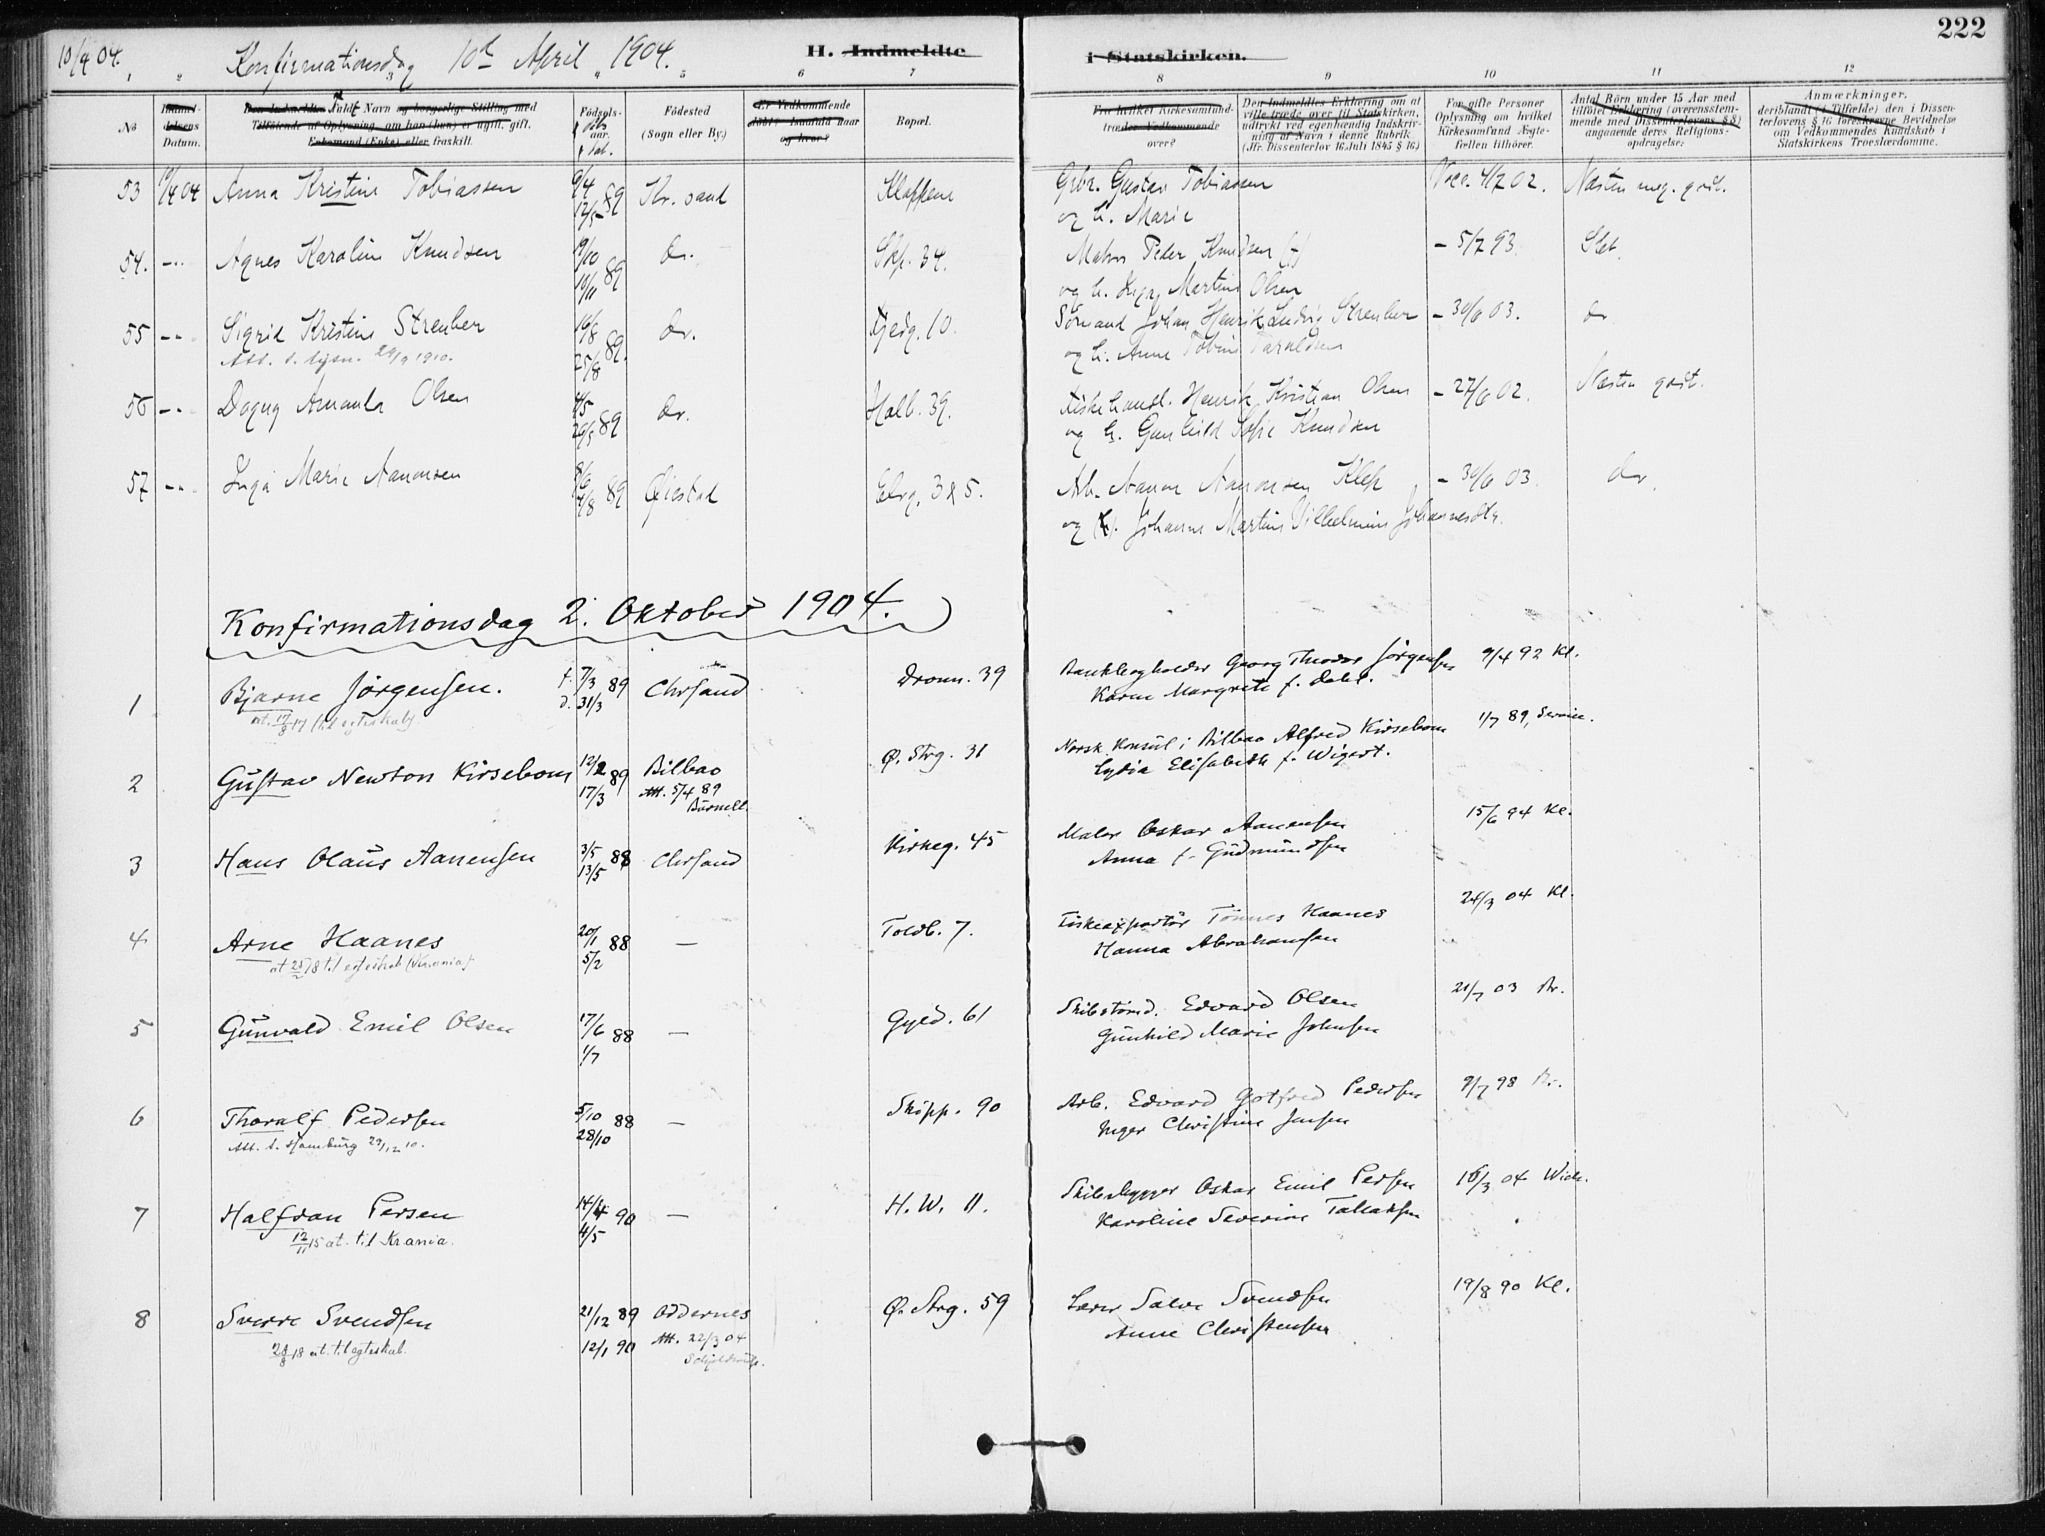 222
10/4 04. Konfirmationsdag 10de April 1904. H. Indmeldte i Statskirken.
2 3 4 5 6 7 8 9 10 11 12
No
Indmeldelsens Datum.
Den Indmeldtes fulde Navn og borgerlige Stilling med
Tilføiende af Oplysning, om han (hun) er ugift, gift,
Enkemand (Enke) eller fraskilt.
Fødsels-
og
aar.
Dåb.
Fødested
(Sogn eller By.)
Er Vedkommende
døbt? Isaafald naar
og hvor?
Bopæl.
Fra hvilket Kirkesamfund
træder Vedkommende
over?
Den Indmeldtes Erklæring om at
ville træde over til Statskirken,
udtrykt ved egenhændig Indskriv-
ning af Navn i denne Rubrik
(Jfr. Dissenterlov 16 Juli 1845 § 16)
For gifte Personer
Oplysning om hvilket
Kirkesamfund Ægte-
fællen tilhører.
Antal Børn under 15 Aar med
tilføiet Erklæring (overensstem-
mende med Dissenterlovens § 8)
angaaende deres Religions-
opdragelse:
Anmærkninger,
deriblandt (i Tilfælde) den i Dissen-
terlovens § 16 foreskrevne Bevidnelse
om Vedkommendes Kundskab i
Statskirkens Troeslærdomme.
53 10/4 04 Anna Kristine Tobiassen 9/4 12/5 89 Kr. sand Klappene Grbr. Gustav Tobiassen Vacc. 4/7 02. Næsten meg. godt.
og h. Marie
54. -"- Agnes Karoline Knudsen 19/10 10/11 89 do. Skp. 34. Matros Peder Knudsen (†) - 5/7 93. Slet.
og h. Inga Martine Olsen
55 -"- Sigrid Kristine Streuber 16/8 25/8 89. do. Tjedg. 10. Sømand Johan Henrik Ludvig Streuber - 30/6 03. do
Att. t. lysn. 29/9 1910. og h. Anne Tobine Taraldsen
56 -"- Dagny Amanda Olsen 4/5 29/5 89 do. Holb. 39. Fiskehandl. Henrik Kristian Olsen - 27/6 02. Næsten godt.
og h. Gunhild Sofie Knudsen
57 -"- Inga Marie Aanonsen 8/6 4/8 89 Øiestad Elvg. 385. Arb. Aanon Aanonsen Klep - 30/6 03. do.
og h. Johanne Martine Vilhelmine Johannesdtr.
Konfirmationsdag 2. Oktober 1904.
1 Bjarne Jörgensen. f. 7/3 89 d. 31/3 Chrsand Dronn. 39 Bankbogholder Georg Theodor Jörgensen 9/4 92 Kl.
at. 17/8 17 (til egteskab). Karen Margrete f. Dahl.
2 Gustav Newton Kirsebom 12/2 89 17/3 Bilbao Ø. Strg. 31 Norsk Konsul i Bilbao Alfred Kirsebom 1/7 89,
Att. 5/4 89 Lydia Elisabeth f. Wigert.
Burnell.
3 Hans Olaus Aanensen 3/5 88 13/5 Chrsand Kirkeg. 45 Maler Oskar Aanensen 15/6 94 Kl.
Anna f. Gudmundsen
4 Arne Haanes 20/1 88 5/2 — Toldb. 7. Fiskeexportör Tönnes Haanes 24/3 04 Kl.
at 25/2 18 til egteskab (Kr.ania) Hanna Abrahamsen
5 Gunvald Emil Olsen 17/6 88 1/7 — Gyld. 61 Skibstömd. Edvard Olsen 21/7 03 Br.
Gunhild Marie Johnsen
6 Thoralf Pedersen 5/10 88 28/10 — Skipp. 90 Arb. Edvard Gotfred Pedersen 9/7 98 Br.
Att. t. Hamburg 29/12 10. Inger Christine Jensen
7 Halfdan Persen 14/4 90 4/5 — H. W. 11. Skibsbygger Oskar Emil Persen 16/3 04 Wich.
12/11 15 at. til Krania. Karoline Severine Tallaksen
8 Sverre Svendsen 21/12 89 Oddernes Ø. Strg. 59 Lærer Salve Svendsen 19/8 90 Kl.
12/1 90 Att. 22/3 04 Anne Christensen
28/8 18 at. til egteskab.